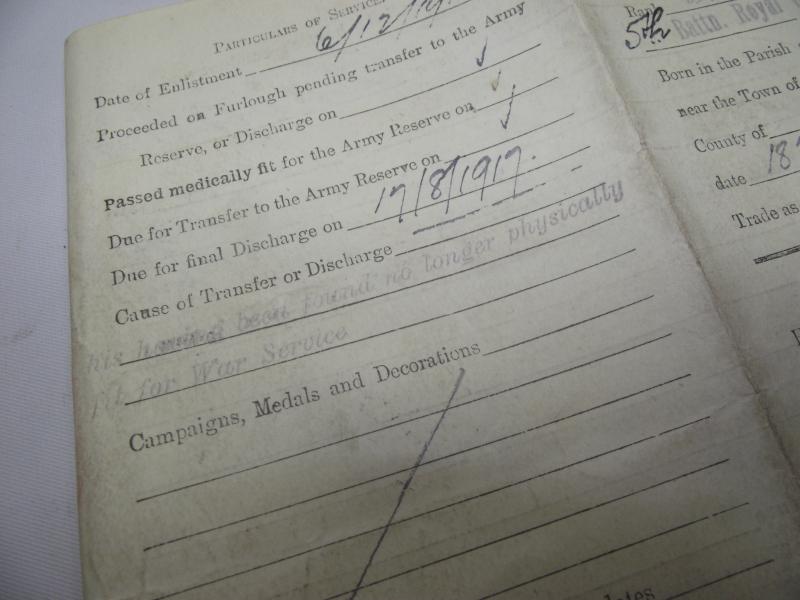 PARTICULARS OF SERVICE.
Date of Enlistment 6/12/19
Proceeded on Furlough pending transfer to the Army
Reserve, or Discharge on
Passed medically fit for the Army Reserve on
Due for Transfer to the Army Reserve on
Due for final Discharge on 17/8/1917.
Cause of Transfer or Discharge
his having been found no longer physically
fit for War Service
Campaigns, Medals and Decorations
Rank
5th Battn. Royal
Born in the Parish
near the Town of
County of
date 18
Trade as